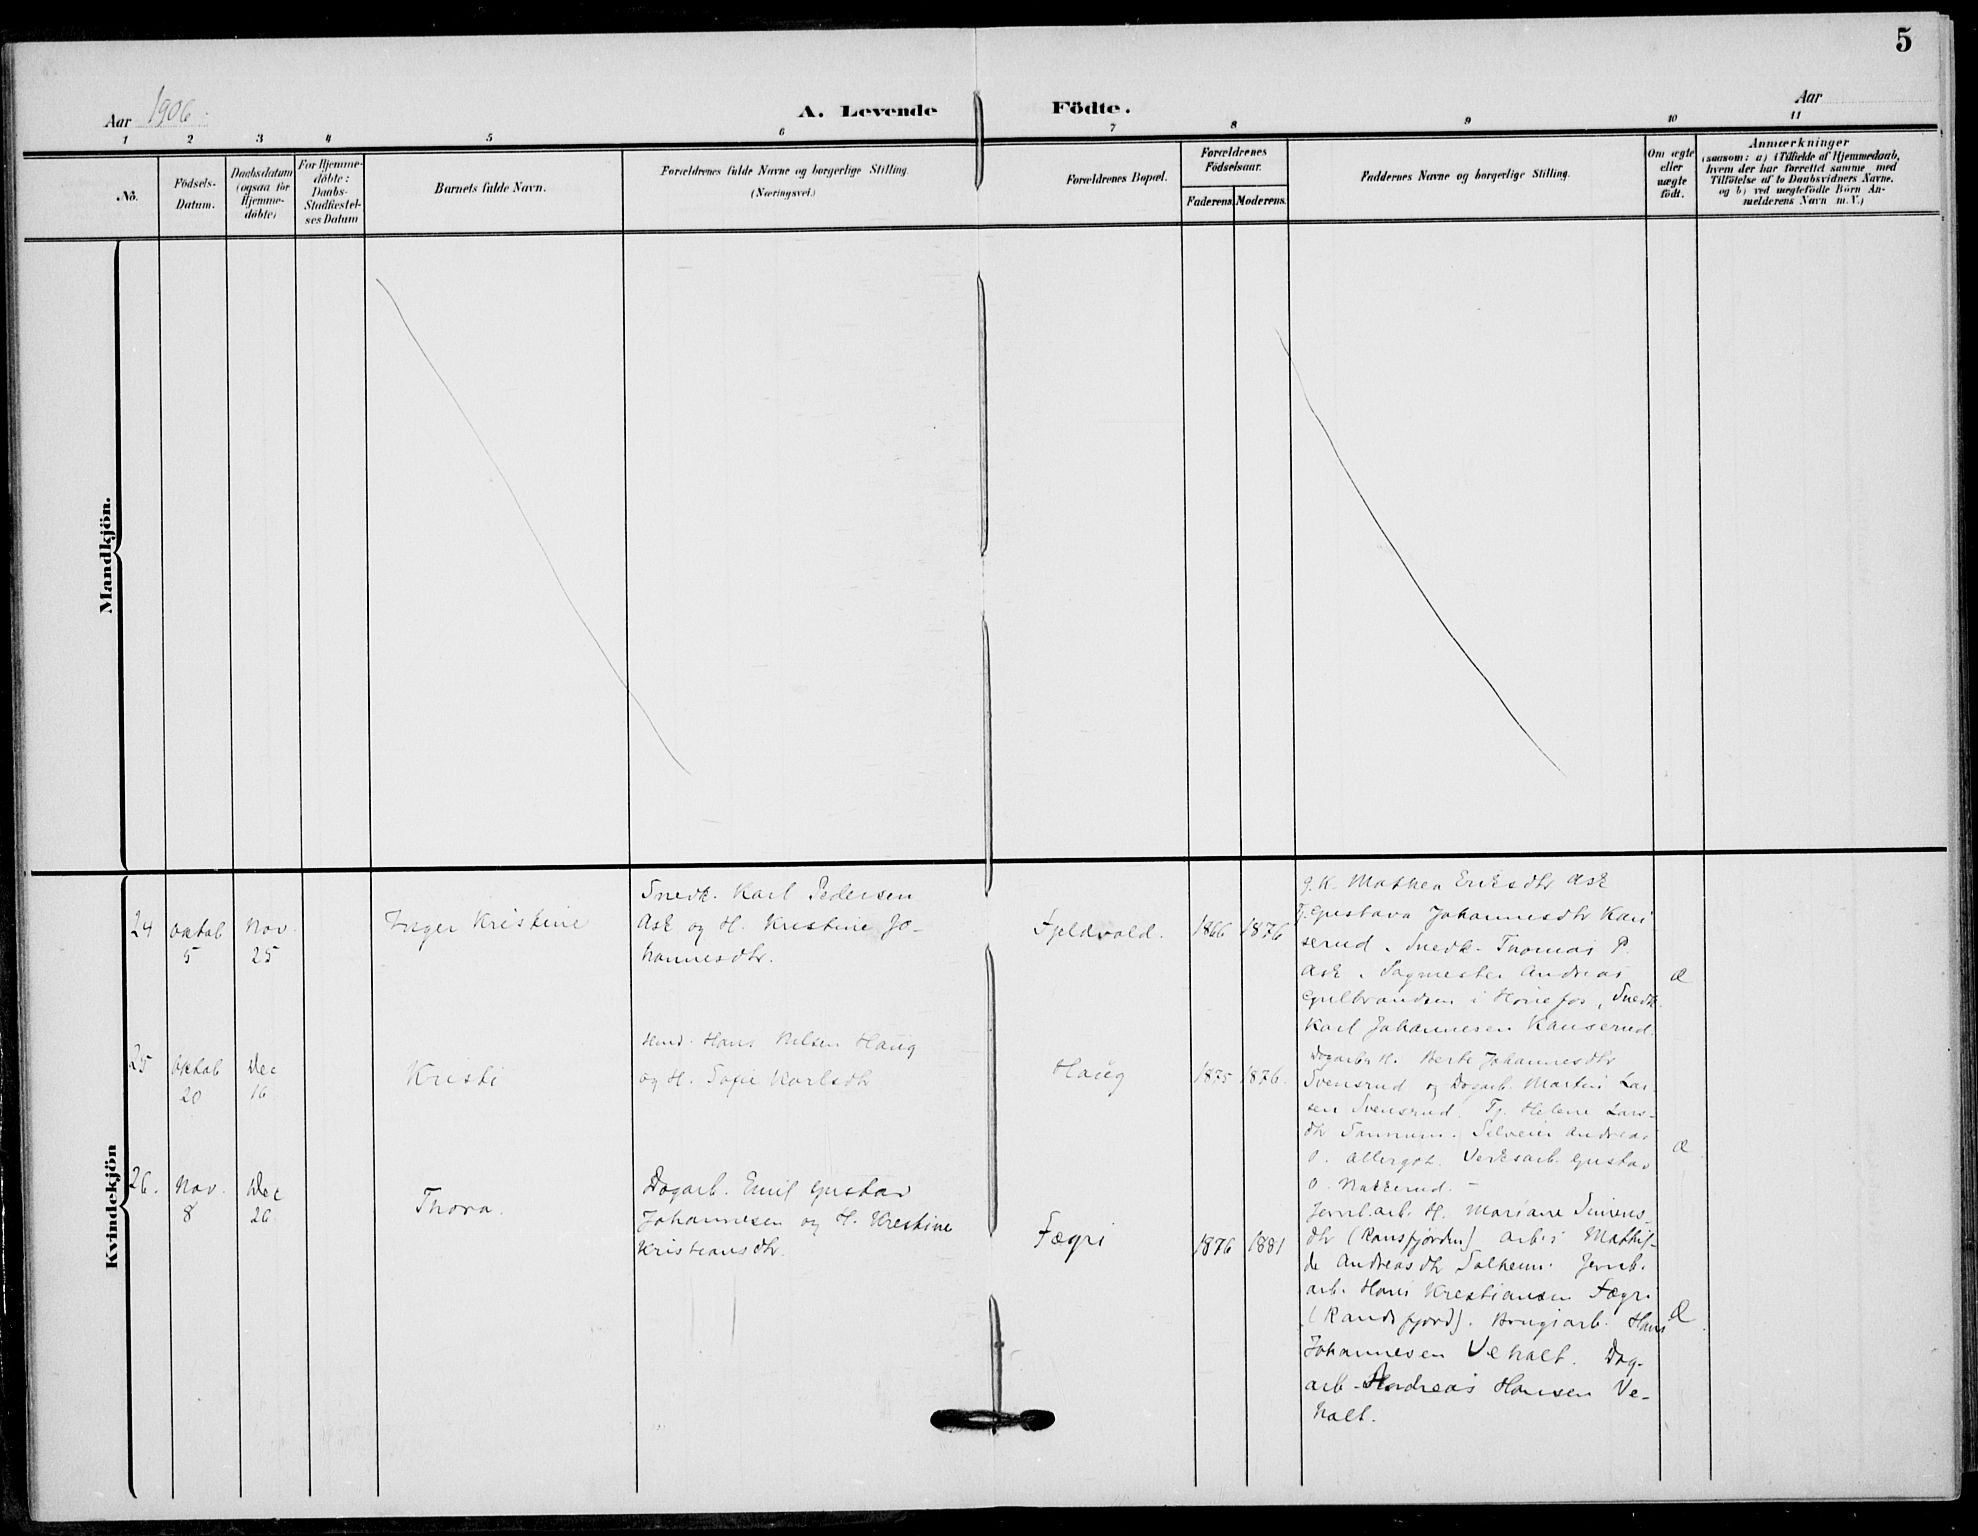 5
Aar 1906.
A. Levende Födte.
Aar
1 2 3 4 5 6 7 8 9 10 11
No.
Födsels-
Datum.
Daabsdatum
(ogsaa for
Hjemme-
döbte)
For Hjemme-
döbte:
Daabs-
Stadfæstel-
ses Datum
Barnets fulde Navn.
Forældrenes fulde Navne og borgerlige Stilling.
(Næringsvei.)
Forældrenes Bopæl.
Forældrenes
Födselsaar.
Faderens. Moderens.
Faddernes Navne og borgerlige Stilling.
Om ægte
eller
uægte
födt.
Anmærkninger
(saasom: a) i Tilfælde af Hjemmedaab,
hvem der har forrettet samme, med
Tilföielse af to Daabsvidners Navne,
og b) ved uægtefödte Börn An-
melderens Navn m. V.)
Mandkjön.
Kvindekjön
24
oktob
5
Nov.
25
Inger Kristine
Snedk. Karl Pedersen
Ask og H. Kristine Jo-
hannesdtr.
Fjeldvold.
1866 1876
g.k. Mathea Eriksdtr Ask
Tj. Gustava Johannesdtr Kari
serud. Snedk. Thomas P.
Ask. Sagmester Andreas
Gulbrandsen i Hönefos, Snedk.
Karl Johannesen Kanserud.
Æ
25
oktob
20
Dec
16
Kristi
Hans Nilsen Haug
og H. Sofie Karlsdtr
Haug
1875 1876.
Dagarb. H. Berte Johannesdtr
Svensrud og Dagarb. Martin Lar-
sen Svensrud. Tj. Helene Lars-
dtr Andreas
O. Allergot. Verksarb. Gustav
O. Nakkerud. -
Æ
26.
Nov.
8
Dec
26
Thora.
Dagarb. Emil Gustav
Johannesen og H. Kristine
Kristiansdtr.
Fægri
1876 1881
Jernb.arb. H. Mariane Simens-
dtr (Ransfjorden) arb. Mathil-
de Andreasdtr Solheim. Jernb.
arb. Hans Kristiansen Fægri
(Randsfjord). Brugsarb. Hans
Johannesen Veholt. Dag-
arb. Andreas Hansen Ve-
holt.
Æ